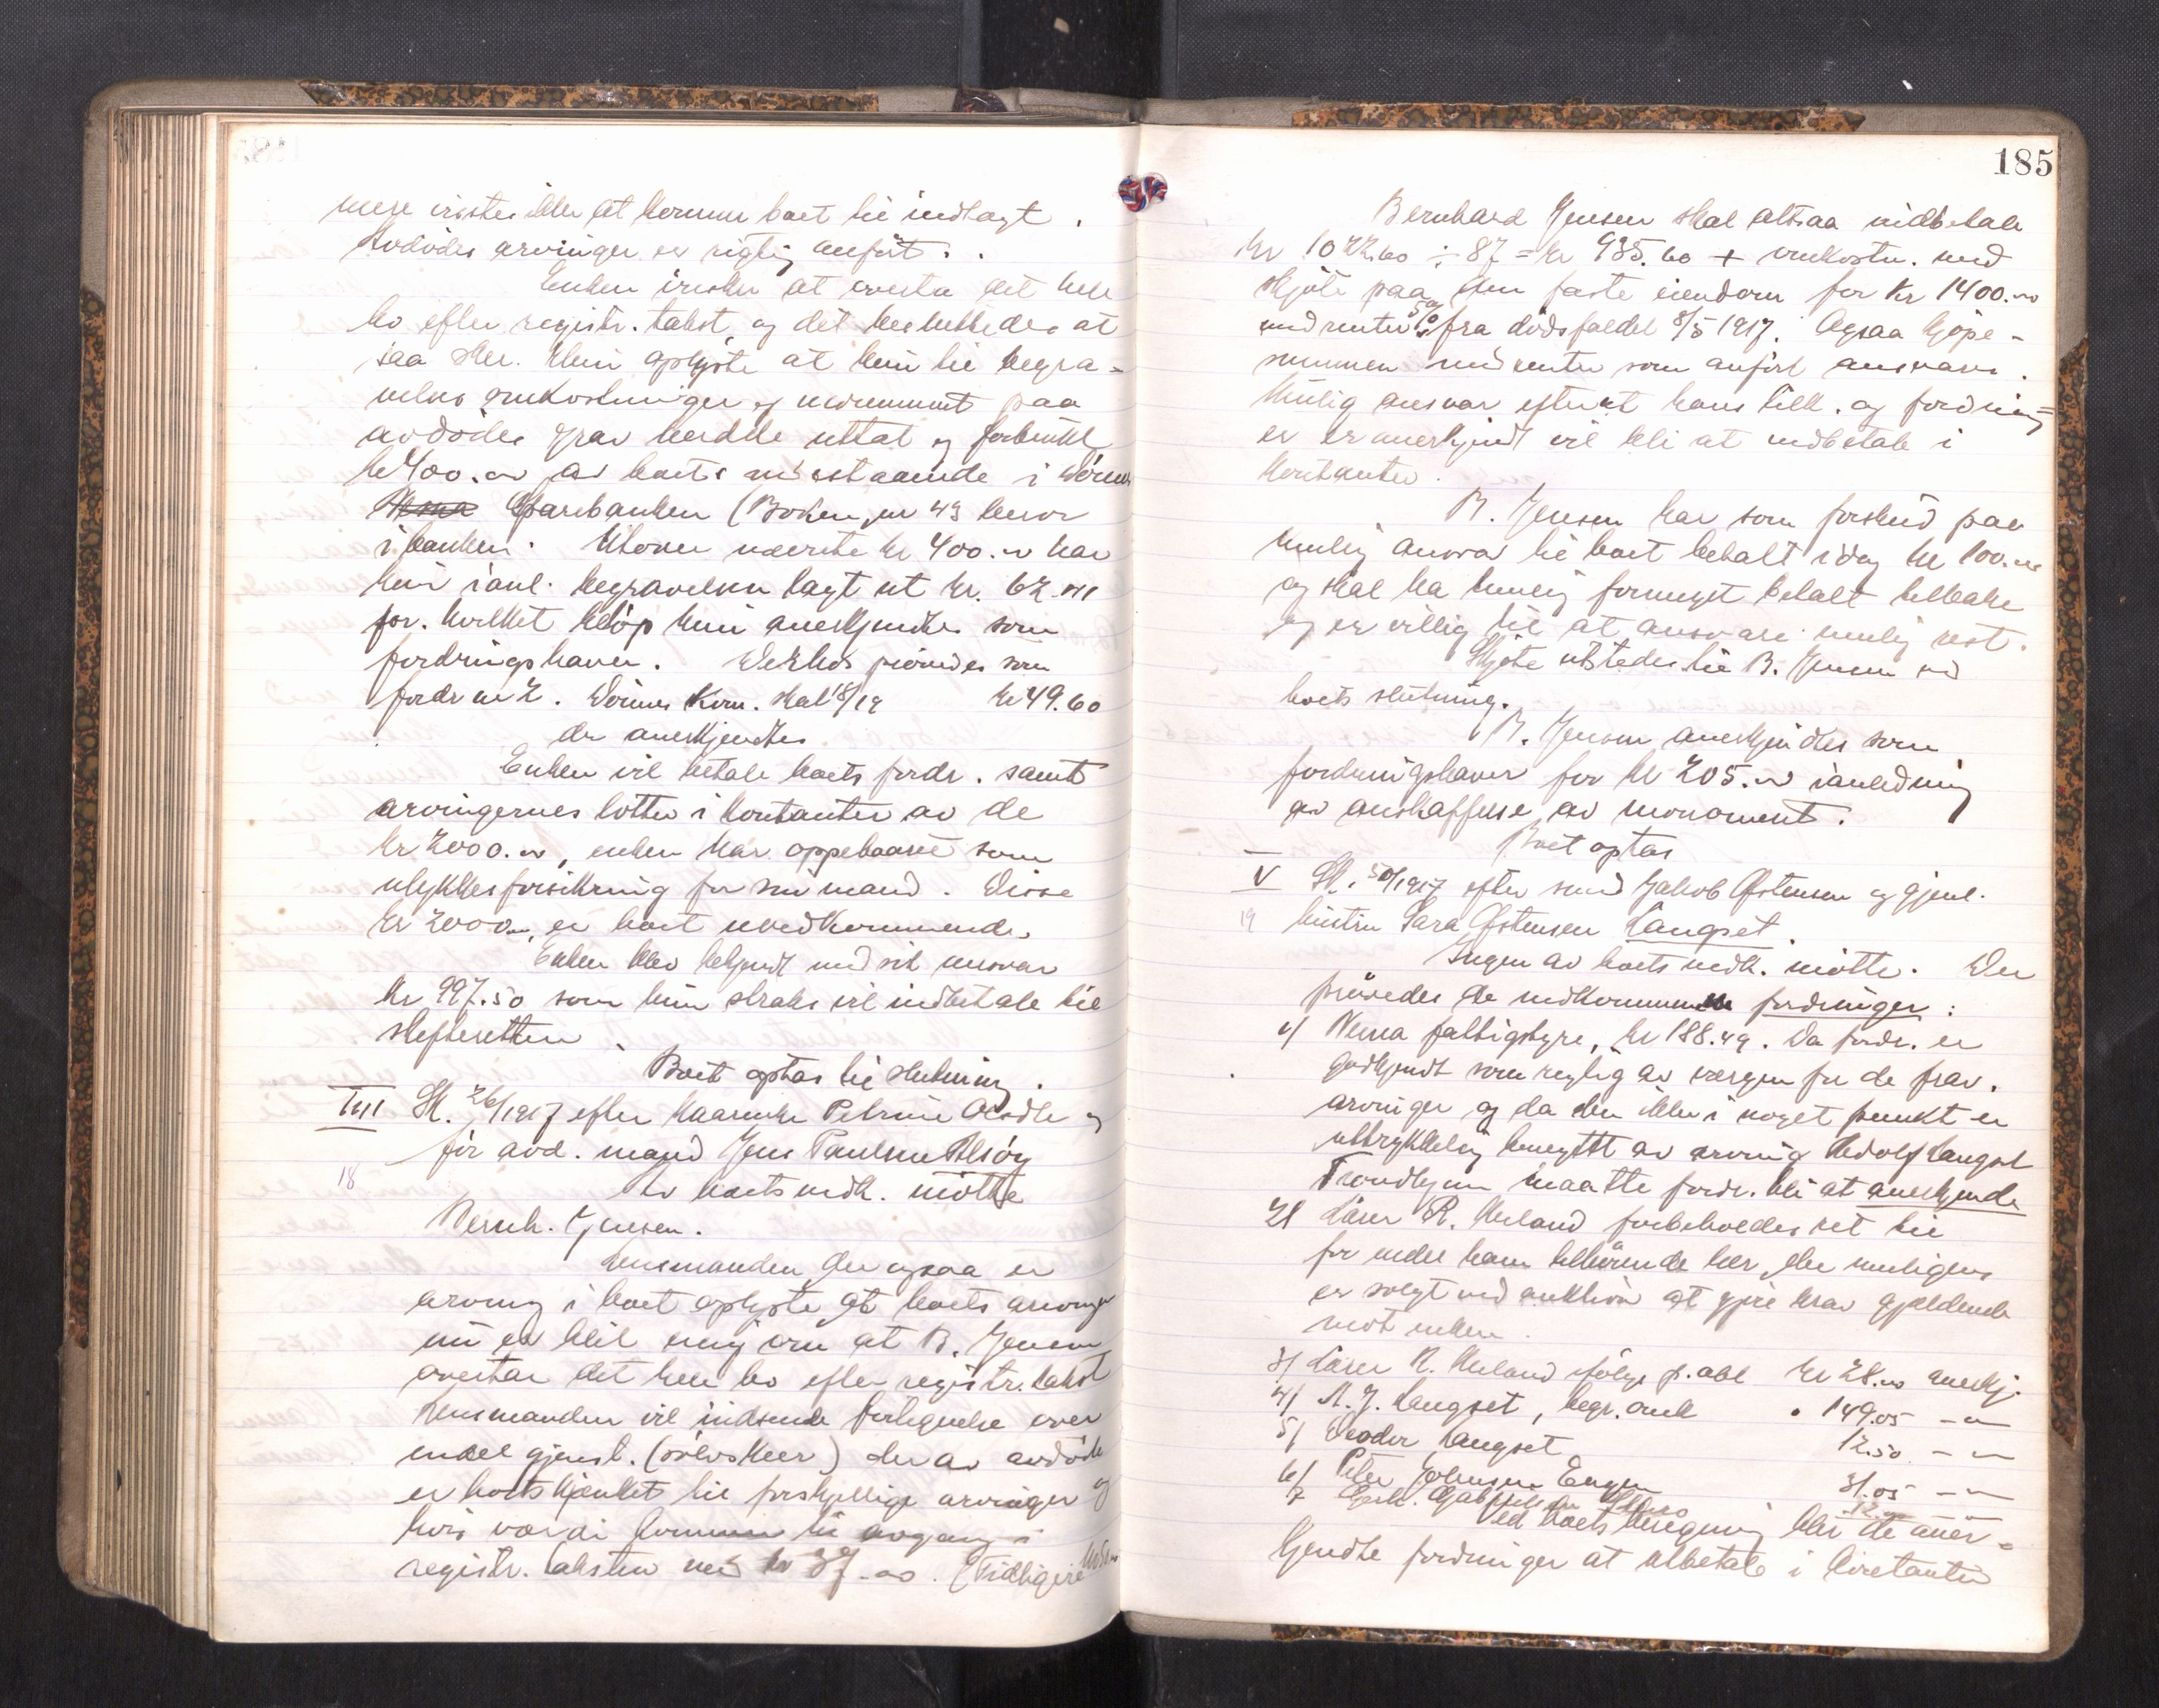 mere vistes ikke at komme boet til indtægt.
Avdødes arvinger er rigtig anført.
Enken ønsker at overta det hele
bo efter registr. takst og det besluttedes at
saa sker. Hun oplyste at hun til begra=
velses omkostninger og monument paa
avdødes grav hadde uttat og forbrukt
kr 400.00 av boets indestaaende i
Sparebanken (Boken nr 43 beror
i banken. Utover nævnte kr 400.00 har
hun i anl. begravelsen lagt ut kr. 62.00
for. hvilket beløp hun anerkjendtes som
fordringshaver. Derefter prøvedes som
fordr nr 2. Kom. skat 18/19 kr 49.60
der anerkjendtes
Enken vil betale boets fordr. samt
arvingernes lotter i kontanter av de
kr 2000.00, enken har oppebaaret som
ulykkesforsikring for sin mand. Disse
kr 2000.00 er boet uvedkommende.
Enken blev bekjendt med sit ansvar
kr 997.50 som hun straks vil indbetale til
skifteretten
Boet optas til slutning.
IIII Sk. 26/1917 efter kaarenke Petrine og
før avd. mand Jens Paulsen Alsøy
18 Av boets vedk. møtte
Bernh. Jensen.
Lensmanden der ogsaa er
arving i boet oplyste at boets arvinger
nu er blit enig om at B. Jensen
overtar det hele bo efter registr. takst
Lensmanden vil indsende fortegnelse over
endel gjenst. (sølvskeer) der av avdøde
er bortskjænket til forskjellige arvinger og
hvis værdi kommer til avgang i
registr. taksten med kr 87.00. (Tidligere
185
Bernhard Jensen skal altsaa indbetale
kr 1022.60 ÷ 87 = kr 935.60 + omkostn. med
skjøte paa den faste eiendom for kr 1400.00
med renter 5% fra dødsfaldet 8/5 1917. Ogsaa kjøpe-
summen med renter som anført ansvares.
Mulig ansvar efter at hans tilk. og fordring=
er er anerkjendt vil bli at indbetale i
kontanter.
B. Jensen har som forskud paa
mulig ansvar til boet betalt idag kr 100.00
og skal ha mulig formeget betalt tilbake
og er villig til at ansvare mulig rest.
Skjøte utstedes til B. Jensen ved
boets slutning.
B. Jensen anerkjendtes som
fordringshaver for kr 205.00 i anledning
av anskaffelse av monoment.
Boet optas
V Sk. 50/1917 efter smed Jakob Østensen og gjenl.
19 hustru Sara Østensen Langset.
Ingen av boets vedk. møtte. Der
prøvedes de indkommne fordringer:
1/ Nesna fattigstyre, kr 188.49. Da fordr. er
godkjendt som rigtig av vergen for de frav.
arvinger og da den ikke i noget punkt er
uttrykkelig benegtet av arving Adolf Langset
Trondhjem maatte fordr. bli at anerkjende
2/ Lærer R. Meland forbeholdes ret til
for endel ham tilhørende klær, der muligens
er solgt ved auktion at gjøre krav gjældende
mot enken.
3/ Lærer R. Meland ifølge p. obl kr 28.00 anerkj.
4/ A. J. Langset, begr. omk " 149.05 - " -
5/ Teodor Langset 12.50 - " -
6/ Peter Johnsen Engen 31.05 - " -
7
Ved boets beregning blir de aner=
kjendte fordringer at utbetale i kontanter